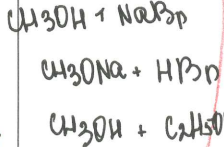 CH3OH + NaBr
CH3ONa + HBr
CH3OH + C2H5O